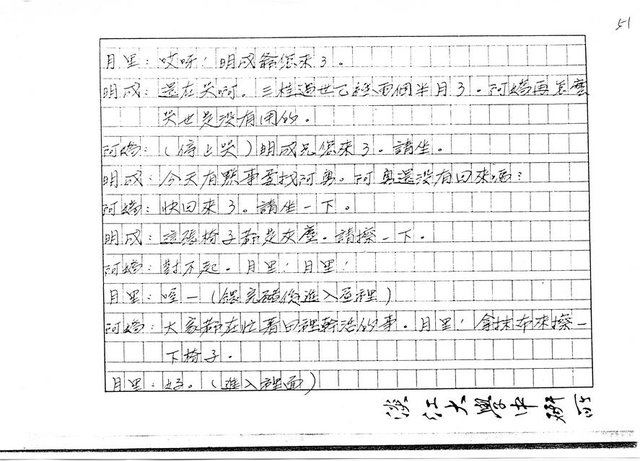 51
月里：哎呀！明成爺您來了。
明成：還在哭啊。三桂過世已經兩個半月了。阿嬌再怎麼
哭也是沒有用的。
阿嬌：（停止哭）明成兄您來了。請坐。
明成：今天有點事要找阿勇。阿勇還沒有回來嗎？
阿嬌：快回來了。請坐一下。
明成：這張椅子都是灰塵。請擦一下。
阿嬌：對不起。月里！月里！
月里：哇—（餵完豬後進入屋裡）
阿嬌：大家都在忙著田裡幹活的事。月里！拿抹布來擦一
下椅子。
月里：好。（進入裡面）
淡江大學中研所